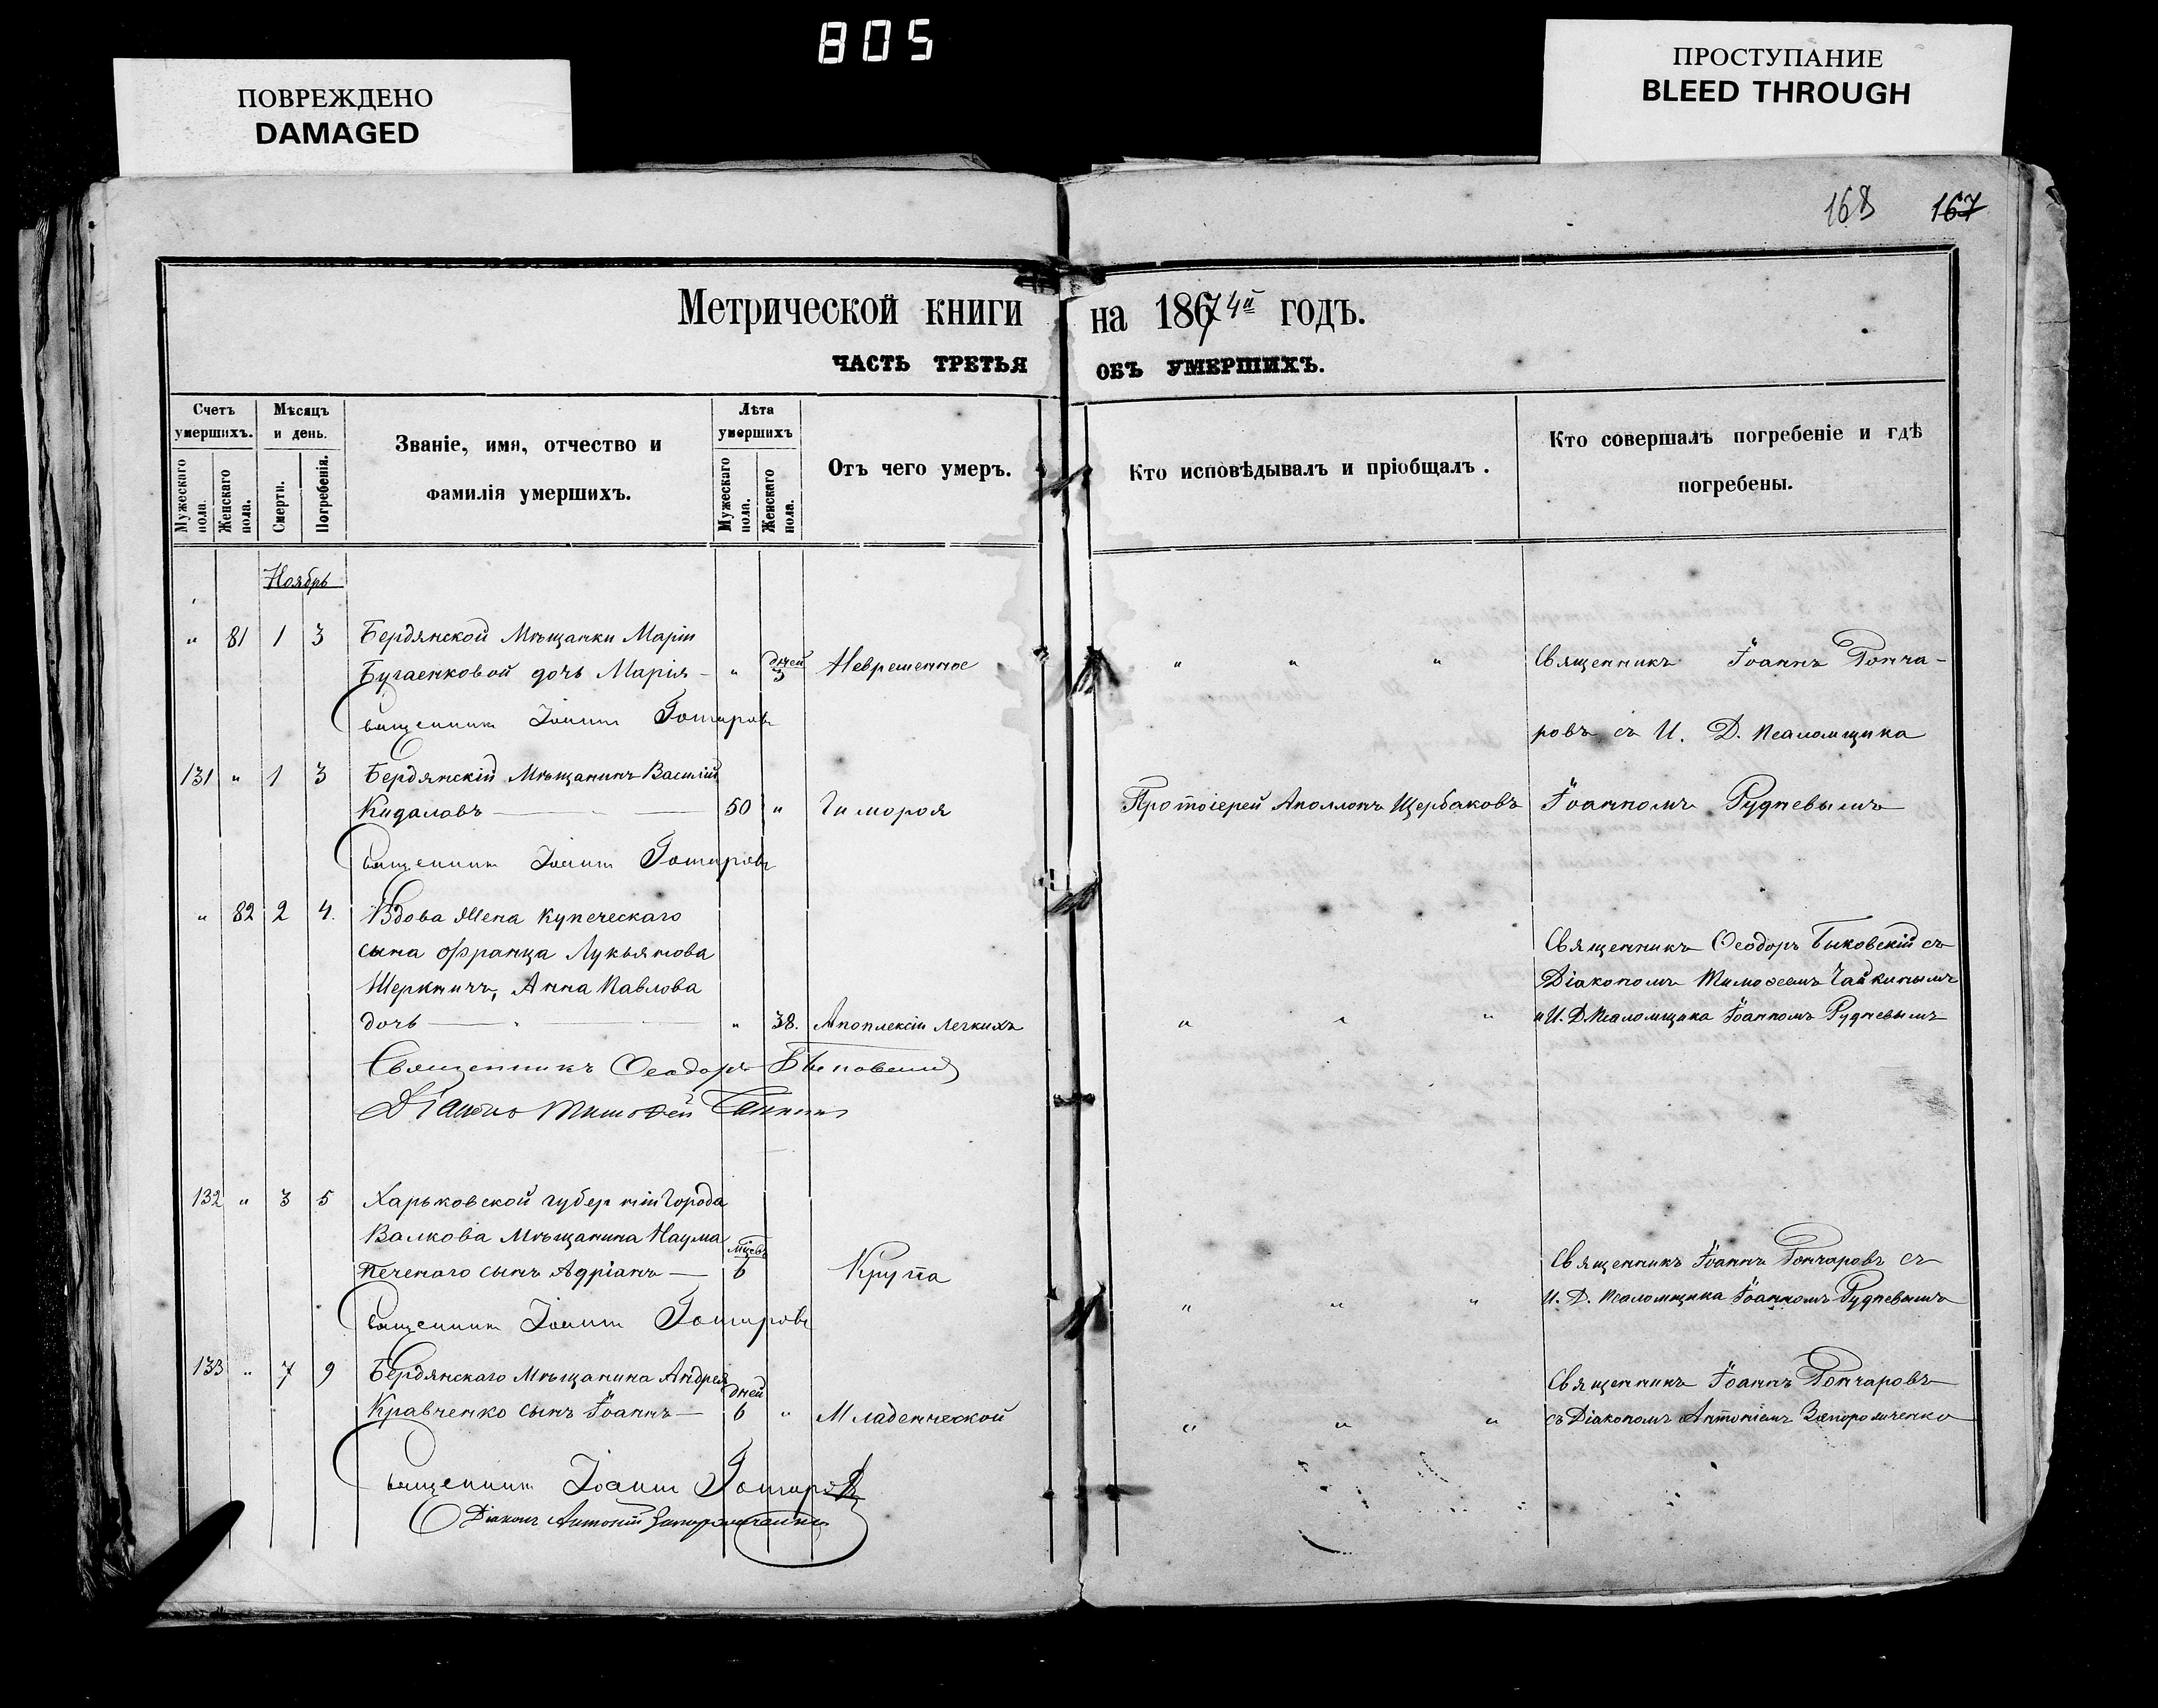 805
ПОВРЕЖДЕНО
DAMAGED
ПРОСТУПАНИЕ
BLEED THROUGH
168 167
Метрической книги на 1874й годъ.
ЧАСТЬ ТРЕТЬЯ ОБЪ УМЕРШИХЪ.
Счетъ умершихъ.
Мужескаго пола.
Женскаго пола.
Мѣсяцъ и день.
Смерти.
Погребенія.
Званіе, имя, отчество и
фамилія умершихъ.
Лѣта умершихъ
Мужескаго пола.
Женскаго пола.
Отъ чего умеръ.
Кто исповѣдывалъ и пріобщалъ.
Кто совершалъ погребеніе и гдѣ
погребены.
Ноябрь
" 81 1 3 Бердянской Мѣщанки Маріи
Бугаенковой дочь Марія - " дней 3 Невременное " " " Священникъ Іоаннъ Гонча-
Священникъ Іоаннъ Гончаровъ
ровъ съ И. Д. Псаломщика
131 " 1 3 Бердянскій Мѣщанинъ Василій
Кидаловъ — 50 " Гиморой Протоіерей Аполлонъ Щербаковъ Іоанномъ Рудневымъ
Священникъ Іоаннъ Гончаровъ
" 82 2 4. Вдова Жена Купеческаго
сына Франца Лукьянова
Шеркничъ, Анна Павлова
дочь — " 38. Апоплексіи Легкихъ " " "
Священникъ Ѳеодоръ Быковскій съ
Діакономъ Тимоѳеемъ Чайкинымъ
и И. Д. Псаломщика Іоанномъ Рудневымъ
Священникъ Ѳеодоръ Быковскій
Діаконъ Тимоѳей Чайкинъ
132 " 3 5 Харьковской губерніи Города
Валкова Мѣщанина Наума
Печенаго сынъ Адріанъ — мѣсцвъ 6 Крупа
Священникъ Іоаннъ Гончаровъ съ
" " " И. Д. Псаломщика Іоанномъ Рудневымъ
Священникъ Іоаннъ Гончаровъ
133 " 7 9 Бердянскаго Мѣщанина Андрея
Кравченко сынъ Іоаннъ — дней 6 " Младенческой " " "
Священникъ Іоаннъ Гончаровъ
съ Діакономъ Антоніемъ Запорожченко
Священникъ Іоаннъ Гончаровъ
Діаконъ Антоній Запорожченко